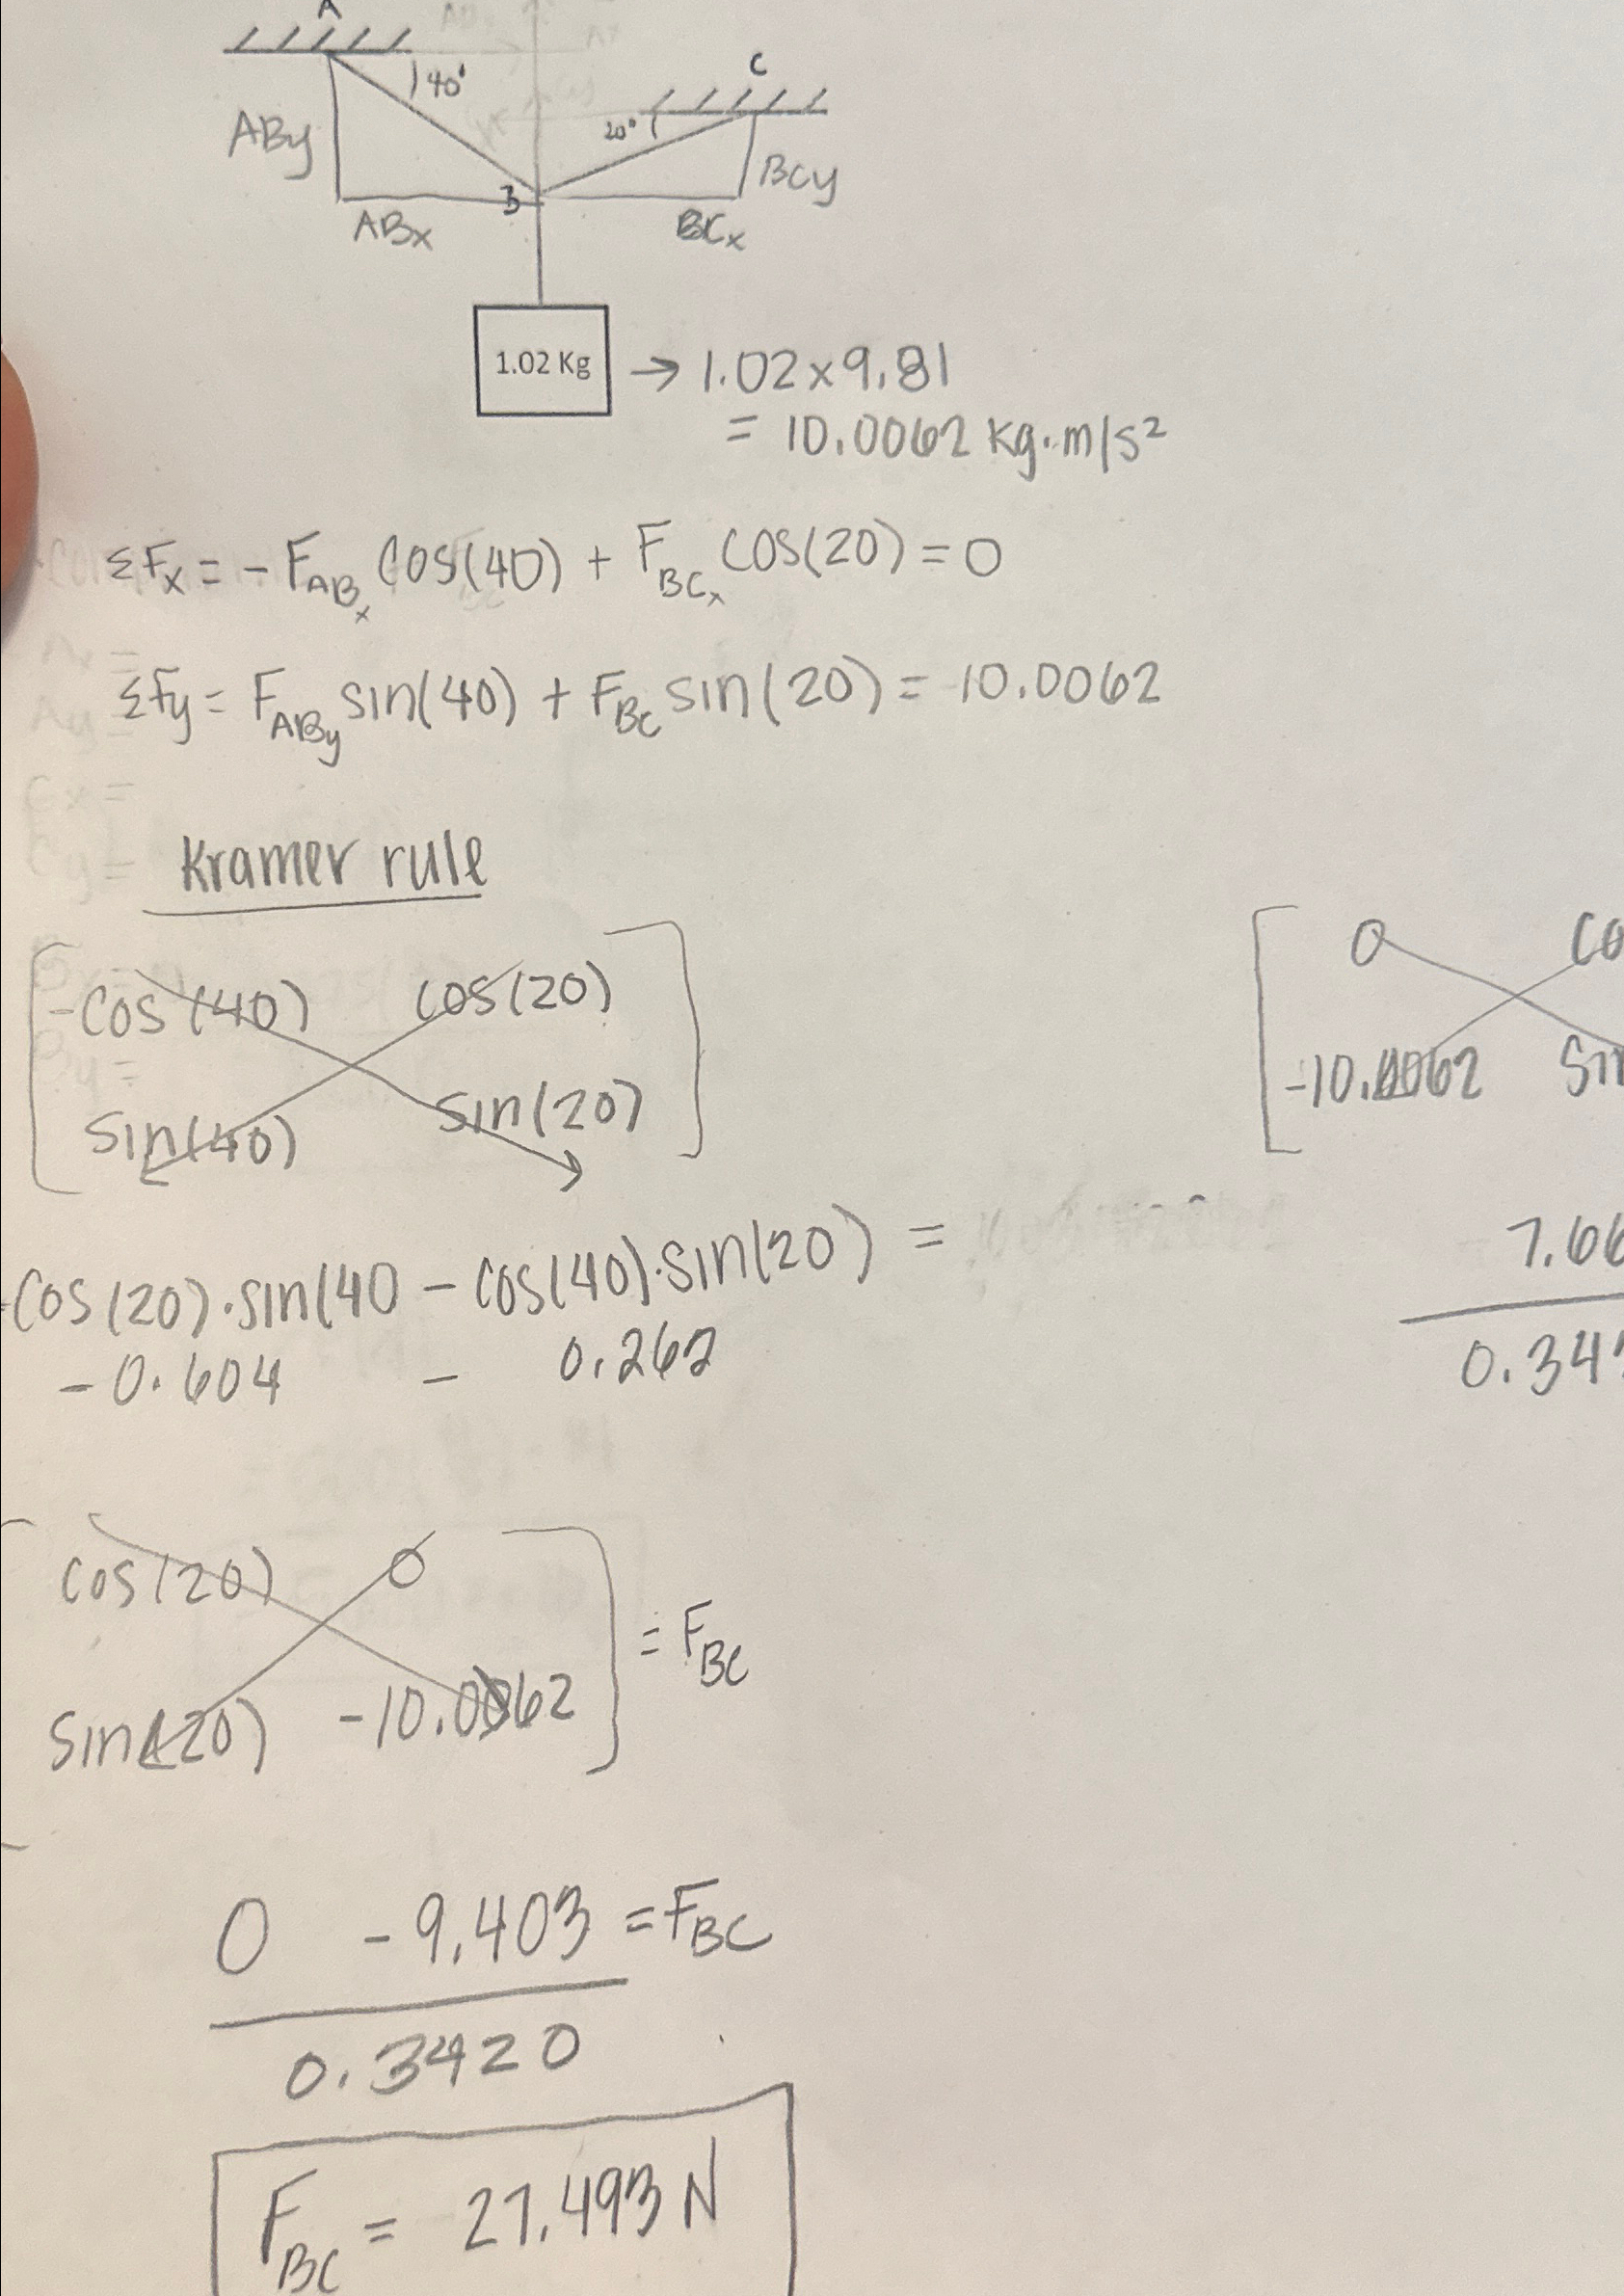 A
40°
C
20°
ABy
BCy
B
ABx
BCx
1.02 Kg → 1.02 x 9.81
= 10.0062 kg·m/s²
ΣFx = - F_ABx cos(40) + F_BCx cos(20) = 0
ΣFy = F_ABy sin(40) + F_BC sin(20) = 10.0062
Kramer rule
-cos(40) cos(20)
sin(40) sin(20)
0
-10.0062
-cos(20)·sin(40 - cos(40)·sin(20) =
-0.604 - 0.262
7.66
0.34
cos(20) 0
sin(20) -10.0062
= F_BC
0 - 9.403 = F_BC
0.3420
F_BC = 27.493 N